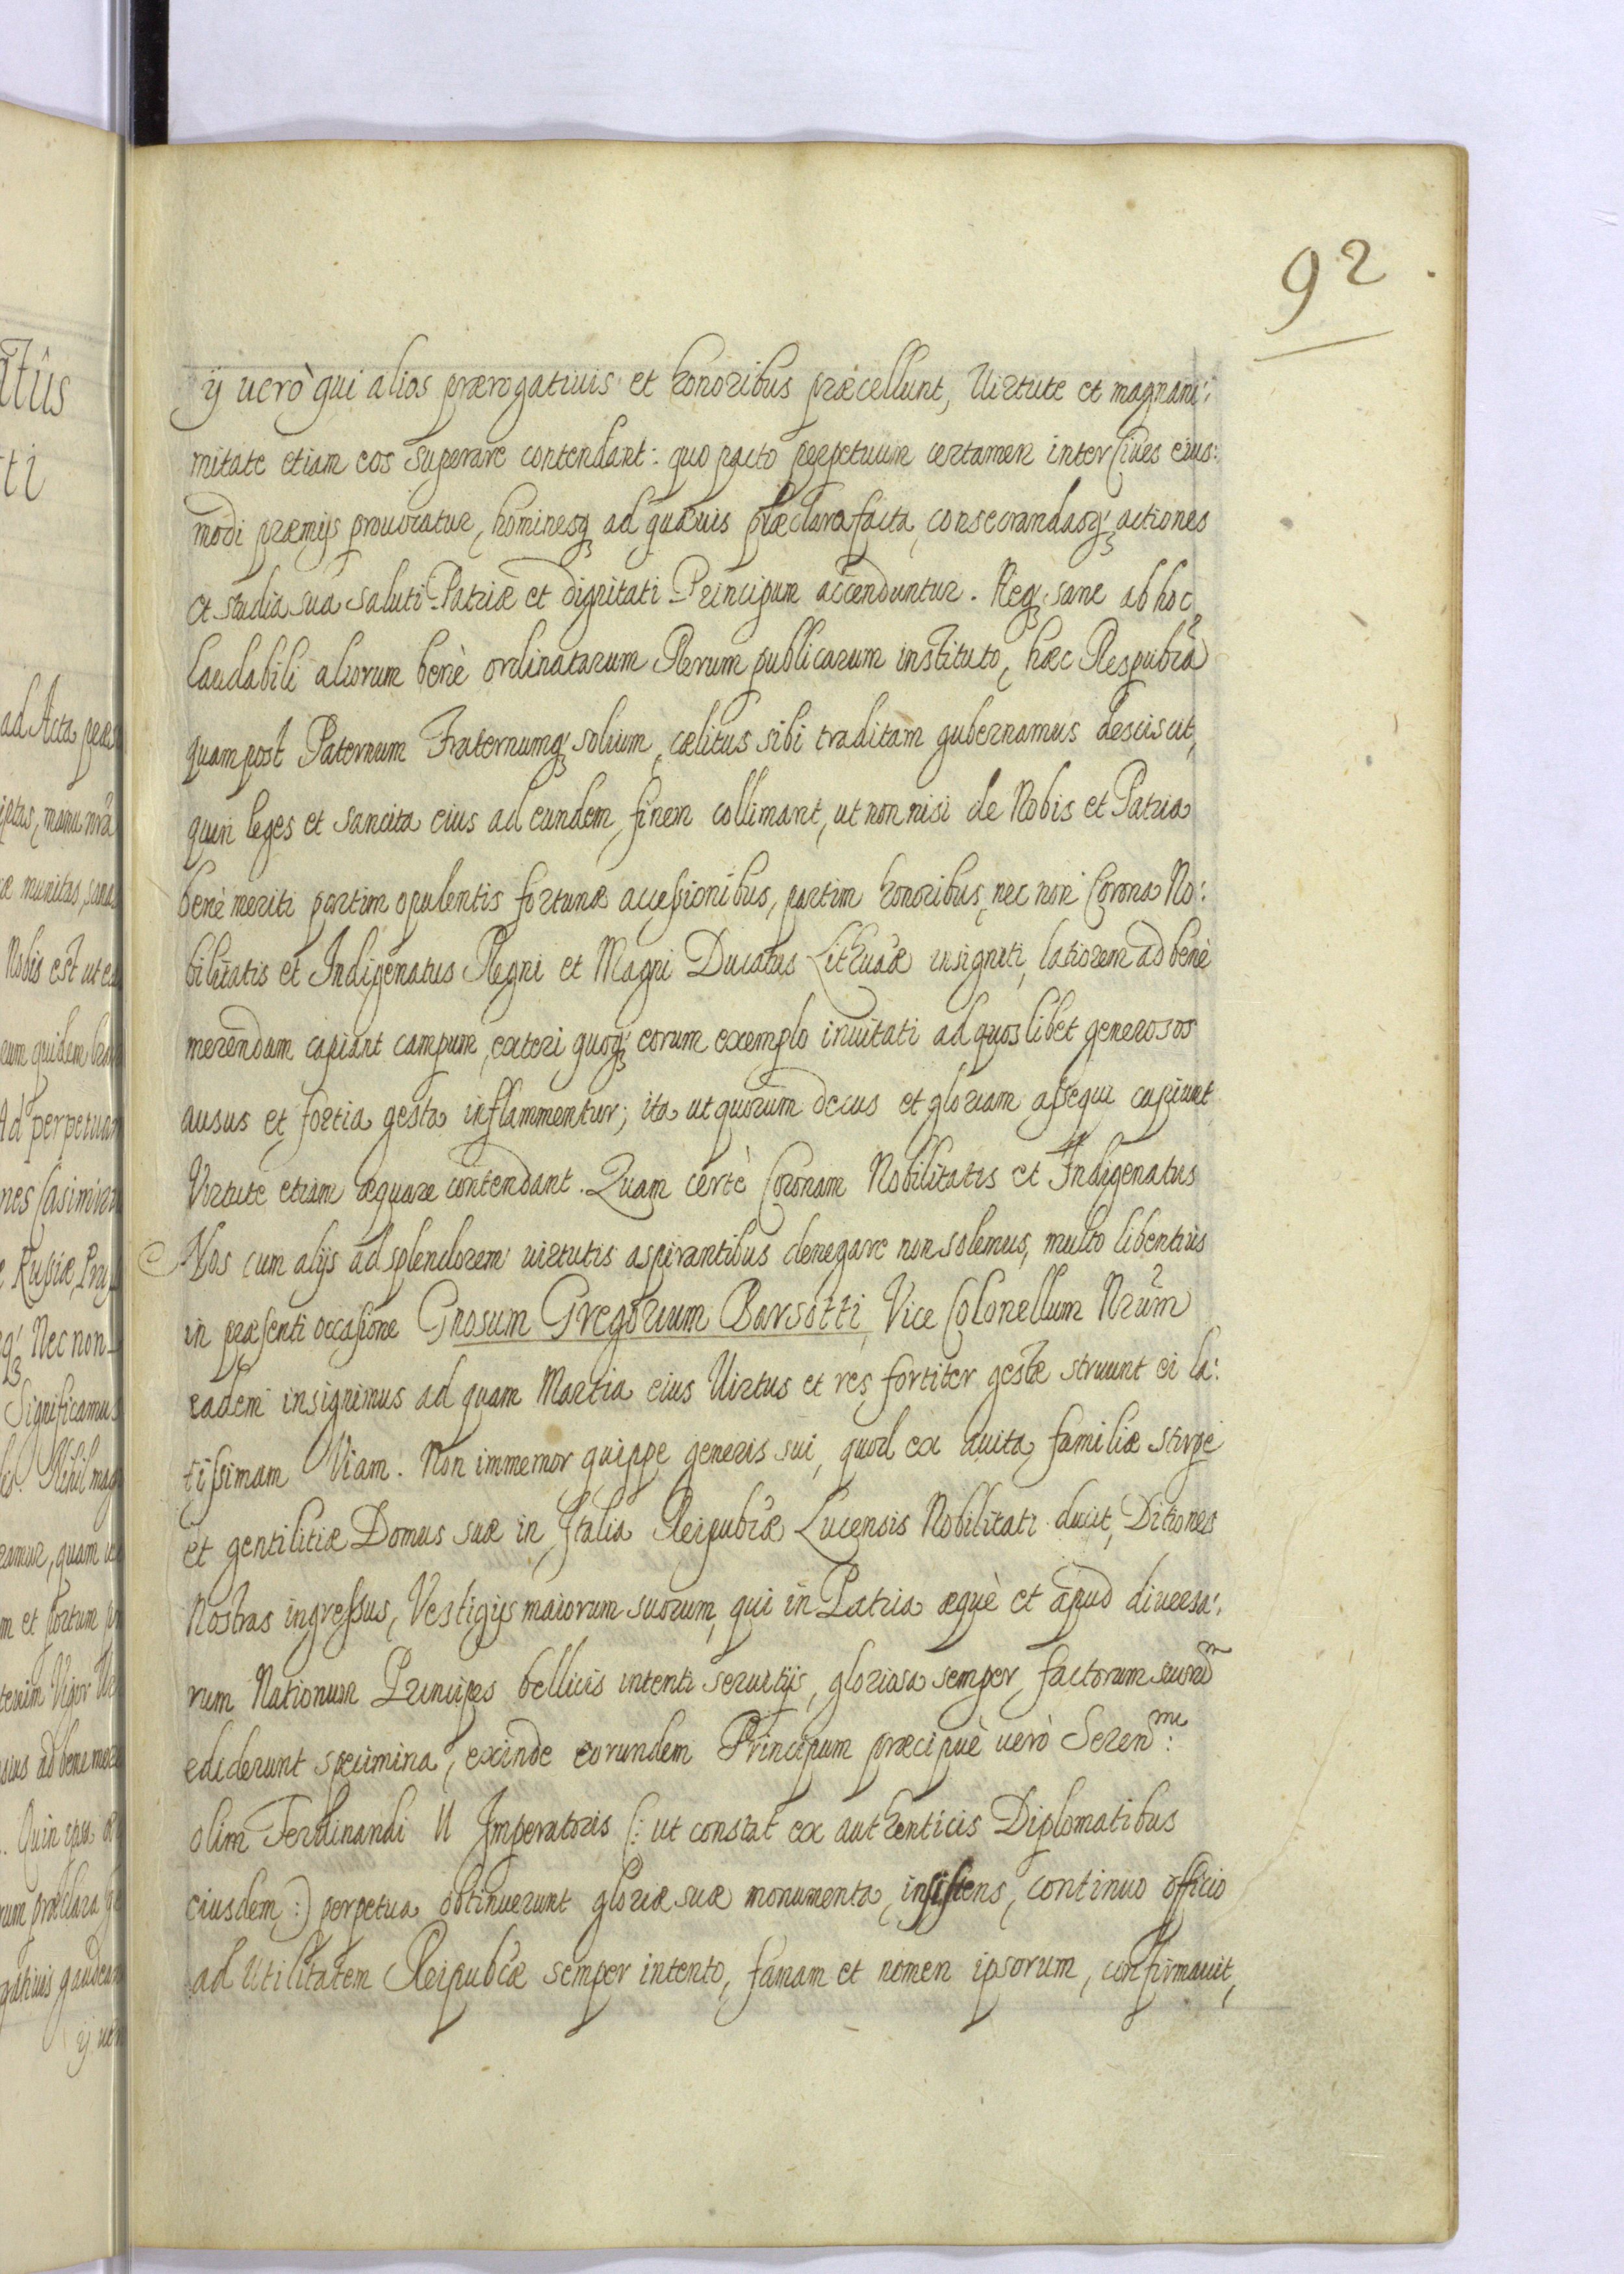 92.
ij uerò qui alios prærogatiuis et honoribus præcellunt, Virtute et magnani:
mitate etiam eos superare contendant: quo pacto perpetuum certamen inter Ciues eius:
modi præmijs prouocatur, hominesq ad quæuis præclara facta, consecrandasq actiones
et studia sua saluti Patriæ et dignitati Principum accenduntur. Neq sane ab hoc
laudabili aliorum benè ordinatarum Rerum publicarum instituto, hæc Respubca
quam post Paternum Fraternumq solium, cælitus sibi traditam gubernamus desciscit,
quin leges et sancita eius ad eundem finem collimant, ut non nisi de Nobis et Patria
benè meriti partim opulentis fortunæ accessionibus, partim honoribus, nec non Corona No:
bilitatis et Indigenatus Regni et Magni Ducatus Lithuaæ insigniti, latiorem ad benè
merendum capiant campum, cæteri quoq eorum exemplo inuitati ad quoslibet generosos
ausus et fortia gesta inflammentur; ita ut quorum decus et gloriam assequi cupiunt
Virtute etiam æquare contendant. Quam certè Coronam Nobilitatis et Indigenatus
Nos cum alijs ad splendorem uirtutis aspirantibus denegare non solemus, multo libentius
in præsenti occasione Gnosum Gregorium Barsotti, Vice Colonellum Nrum
eadem insignimus ad quam Martia eius Virtus et res fortiter gestæ struunt ei la:
tissimam Viam. Non immemor quippe generis sui, quod ex auita familiæ stirpe
et gentilitiæ Domus suæ in Italia Reipubcæ Lucensis Nobilitati ducit, Ditiones
Nostras ingressus, Vestigijs maiorum suorum, qui in Patria æquè et apud diuersa:
rum Nationum Principes bellicis intenti seruitijs, gloriosa semper factorum suorum
ediderunt specimina, exinde eorundem Principum præcipuè uerò Seren:mi
olim Ferdinandi II Imperatoris (: ut constat ex authenticis Diplomatibus
eiusdem :) perpetua obtinuerunt gloriæ suæ monumenta, insistens, continuo officio
ad Utilitatem Reipubcæ semper intento, famam et nomen ipsorum, confirmauit,